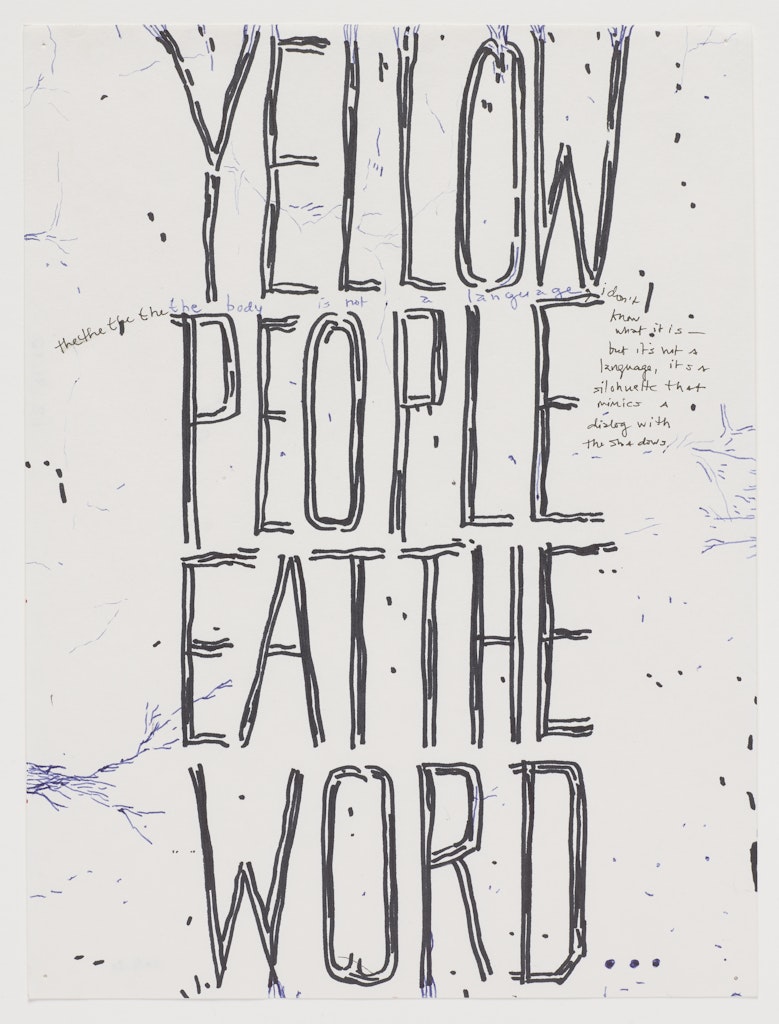 YELLOW
thethe the the the body is not a language, i don't
know
what it is —
but it's not a
language, it's a
silohuette that
mimics a
dialog with
the shadows,
PEOPLE
EAT THE
WORD...